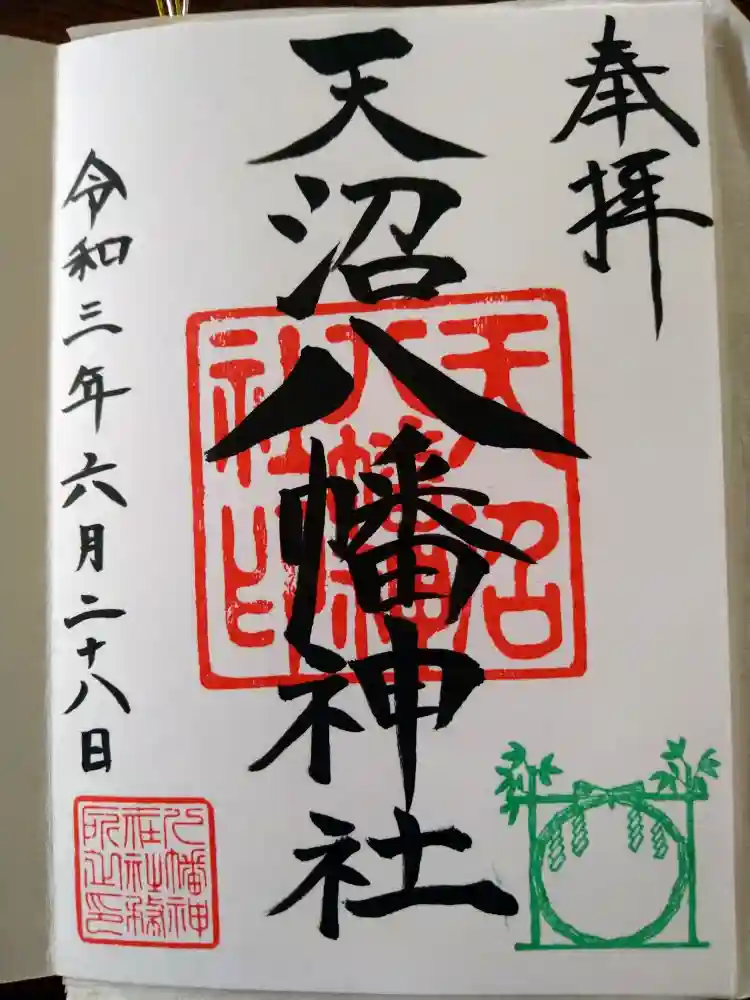 奉拝
天沼八幡神社
天沼
八幡神
社印
令和三年六月二十八日
八幡神
社社務
所之印